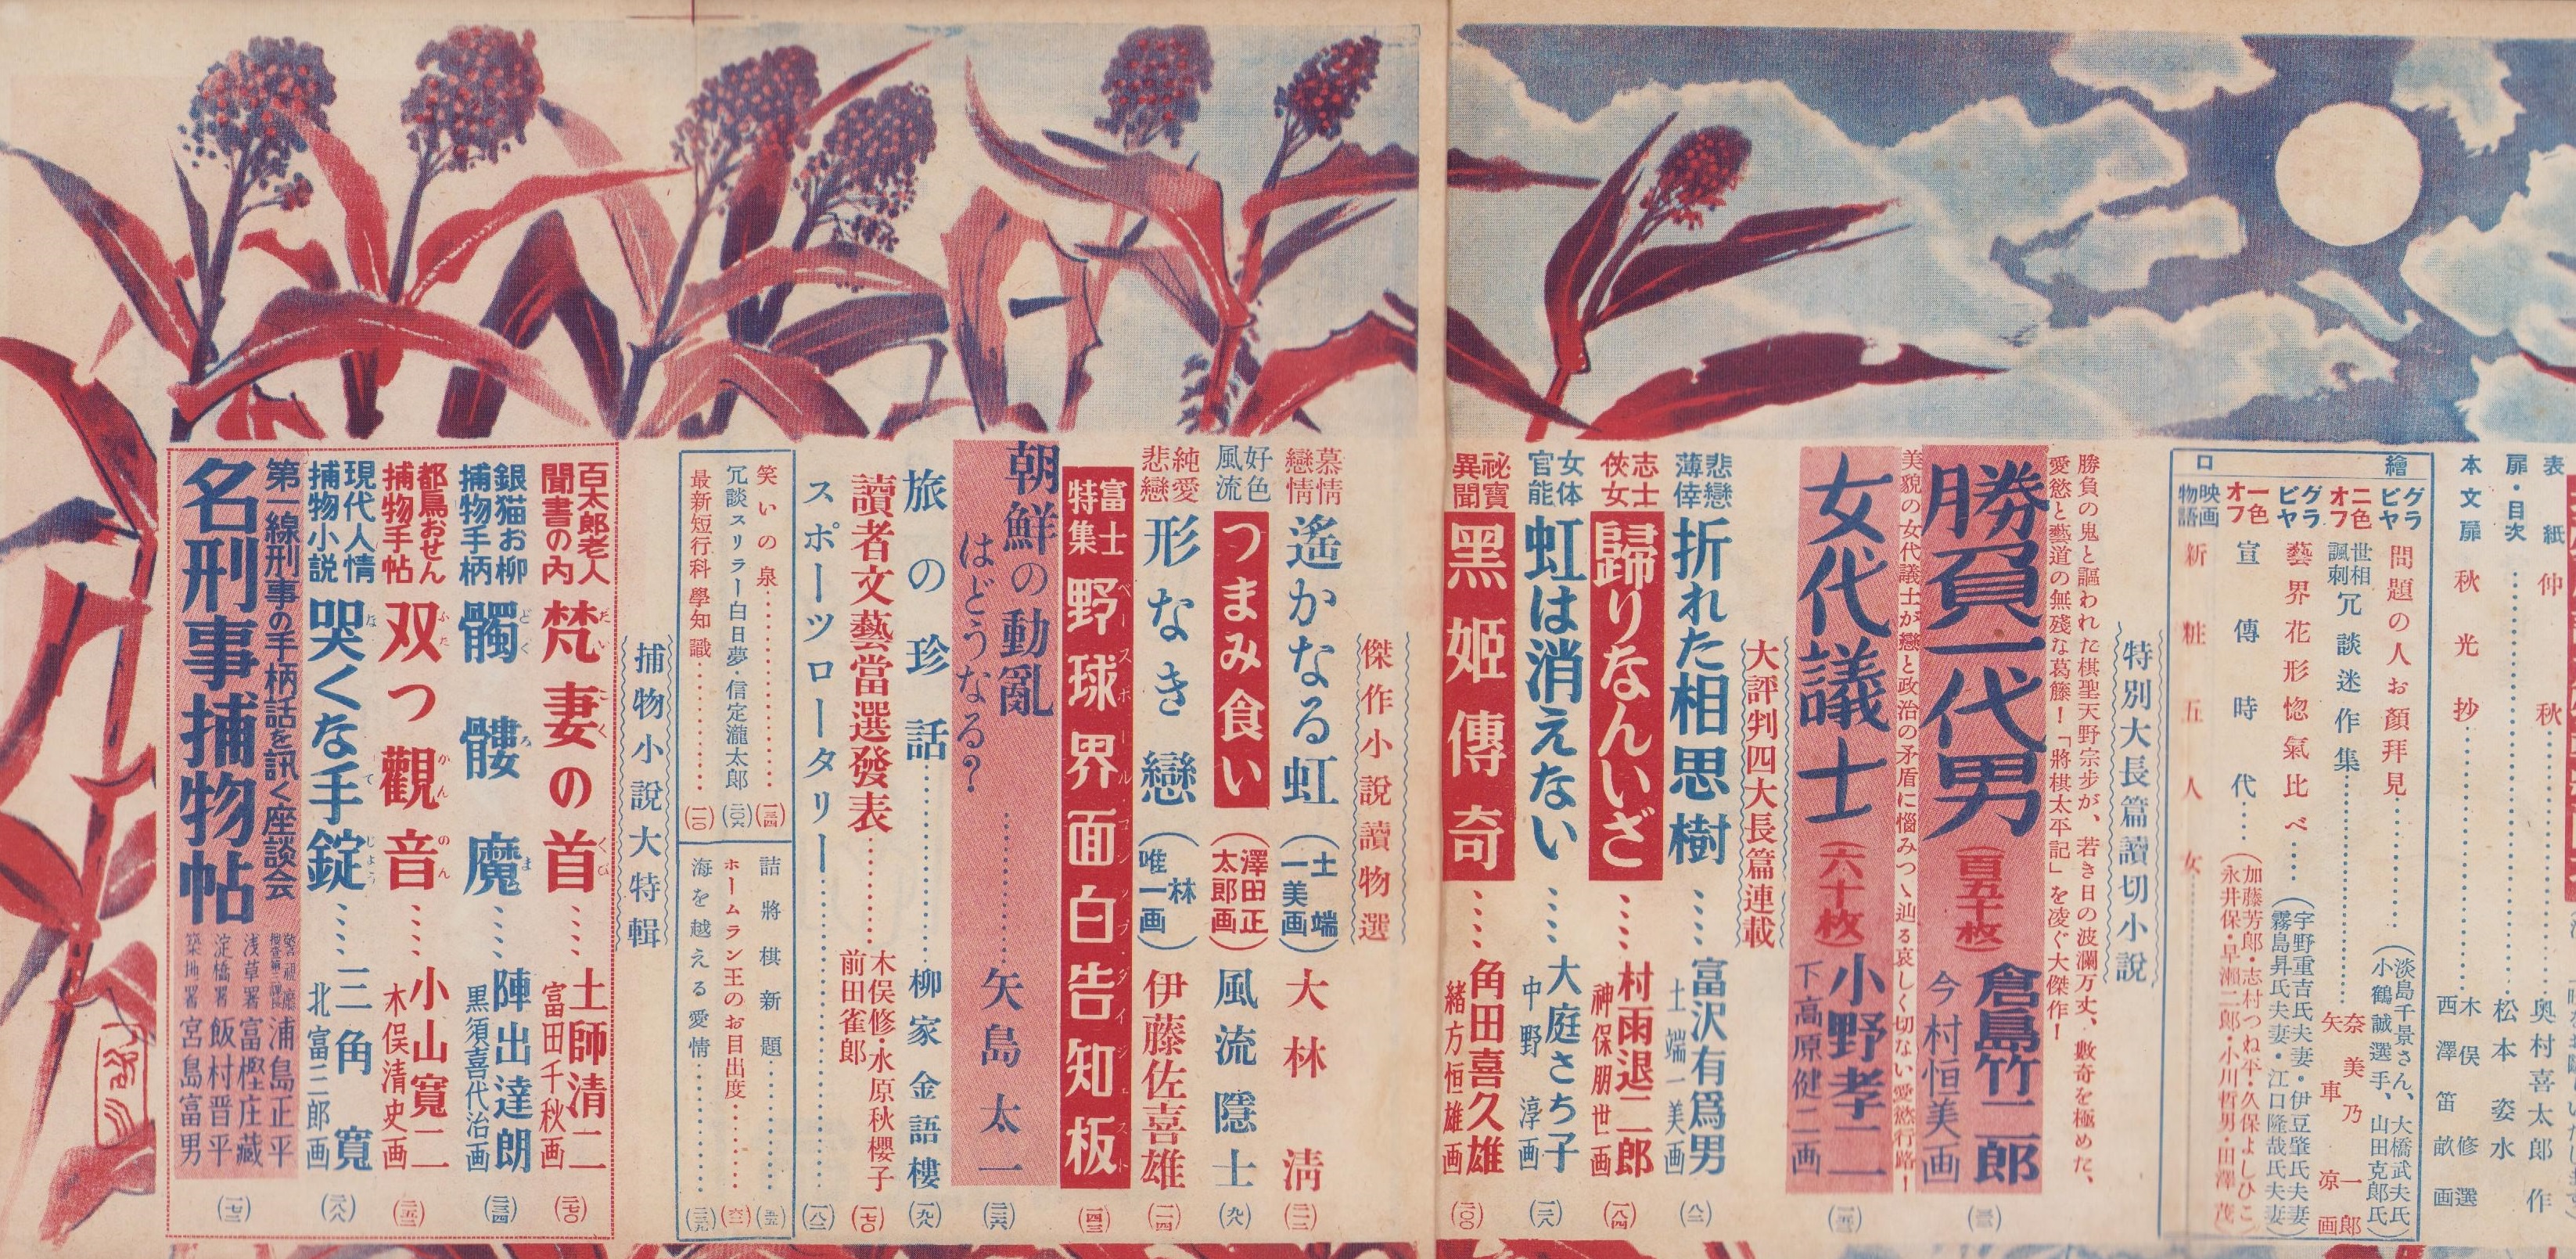 表紙 仲秋 奥村喜太郎作
扉・目次 松本姿水
本文扉 秋光抄 木俣修選
西澤笛畝画
口繪
グラビヤ 問題の人お顔拜見 (淡島千景さん、大橋武夫氏
小鶴誠選手、山田克郎氏)
二色オフ 世相諷刺 冗談迷作集 奈美乃一郎
矢車凉画
グラビヤ 藝界花形惚氣比べ (宇野重吉氏夫妻・伊豆肇氏夫妻
霧島昇氏夫妻・江口隆哉氏夫妻)
一色オフ 宣傳時代 (加藤芳郎・志村つね平・久保よしひこ
永井保・早瀬二郎・小川哲男・田澤茂)
映画物語 新粧五人女
特別大長篇讀切小説
勝負の鬼と謳われた棋聖天野宗歩が、若き日の波瀾万丈、數奇を極めた、
愛慾と藝道の無殘な葛藤!「將棋太平記」を凌ぐ大傑作!
勝負一代男 (百五十枚) 倉島竹二郎
今村恒美画
美貌の女代議士が戀と政治の矛盾に惱みつゝ辿る哀しく切ない愛慾行路!
女代議士 (六十枚) 小野孝二
下高原健二画
大評判四大長篇連載
悲戀薄倖 折れた相思樹 富沢有爲男
土端一美画 (八二)
志士俠女 歸りなんいざ 村雨退二郎
神保朋世画 (一八四)
女体官能 虹は消えない 大庭さち子
中野淳画
祕寶異聞 黑姬傳奇 角田喜久雄
緒方恒雄画 (一〇〇)
傑作小說讀物選
慕情戀情 遙かなる虹 (土端一美画) 大林清
好色風流 つまみ食い (澤田正太郎画) 風流隱士
純愛悲戀 形なき戀 (林唯一画) 伊藤佐喜雄
富士特集 野球界面白告知板
ベースボール・コンソブ・ダイジェスト
朝鮮の動亂
はどうなる? 矢島太一
旅の珍話 柳家金語樓
讀者文藝當選發表 木俣修・水原秋櫻子
前田雀郎
スポーツロータリー
笑いの泉
冗談スリラー白日夢・信定瀧太郎 (二〇六)
最新短行科學知識
詰將棋新題
ホームラン王のお目出度
海を越える愛情
捕物小說大特輯
百太郎老人聞書の内 梵妻の首 土師清二
富田千秋画
銀猫お柳捕物手柄 髑髏魔 陣出達朗
黒須喜代治画
都鳥おせん捕物手帖 双つ觀音 小山寬二
木俣清史画
現代人情捕物小説 哭くな手錠 三角寬
北富三郎画
第一線刑事の手柄話を訊く座談会
名刑事捕物帖
浦島正平
浅草署 富樫庄藏
淀橋署 飯村晋平
築地署 宮島富男